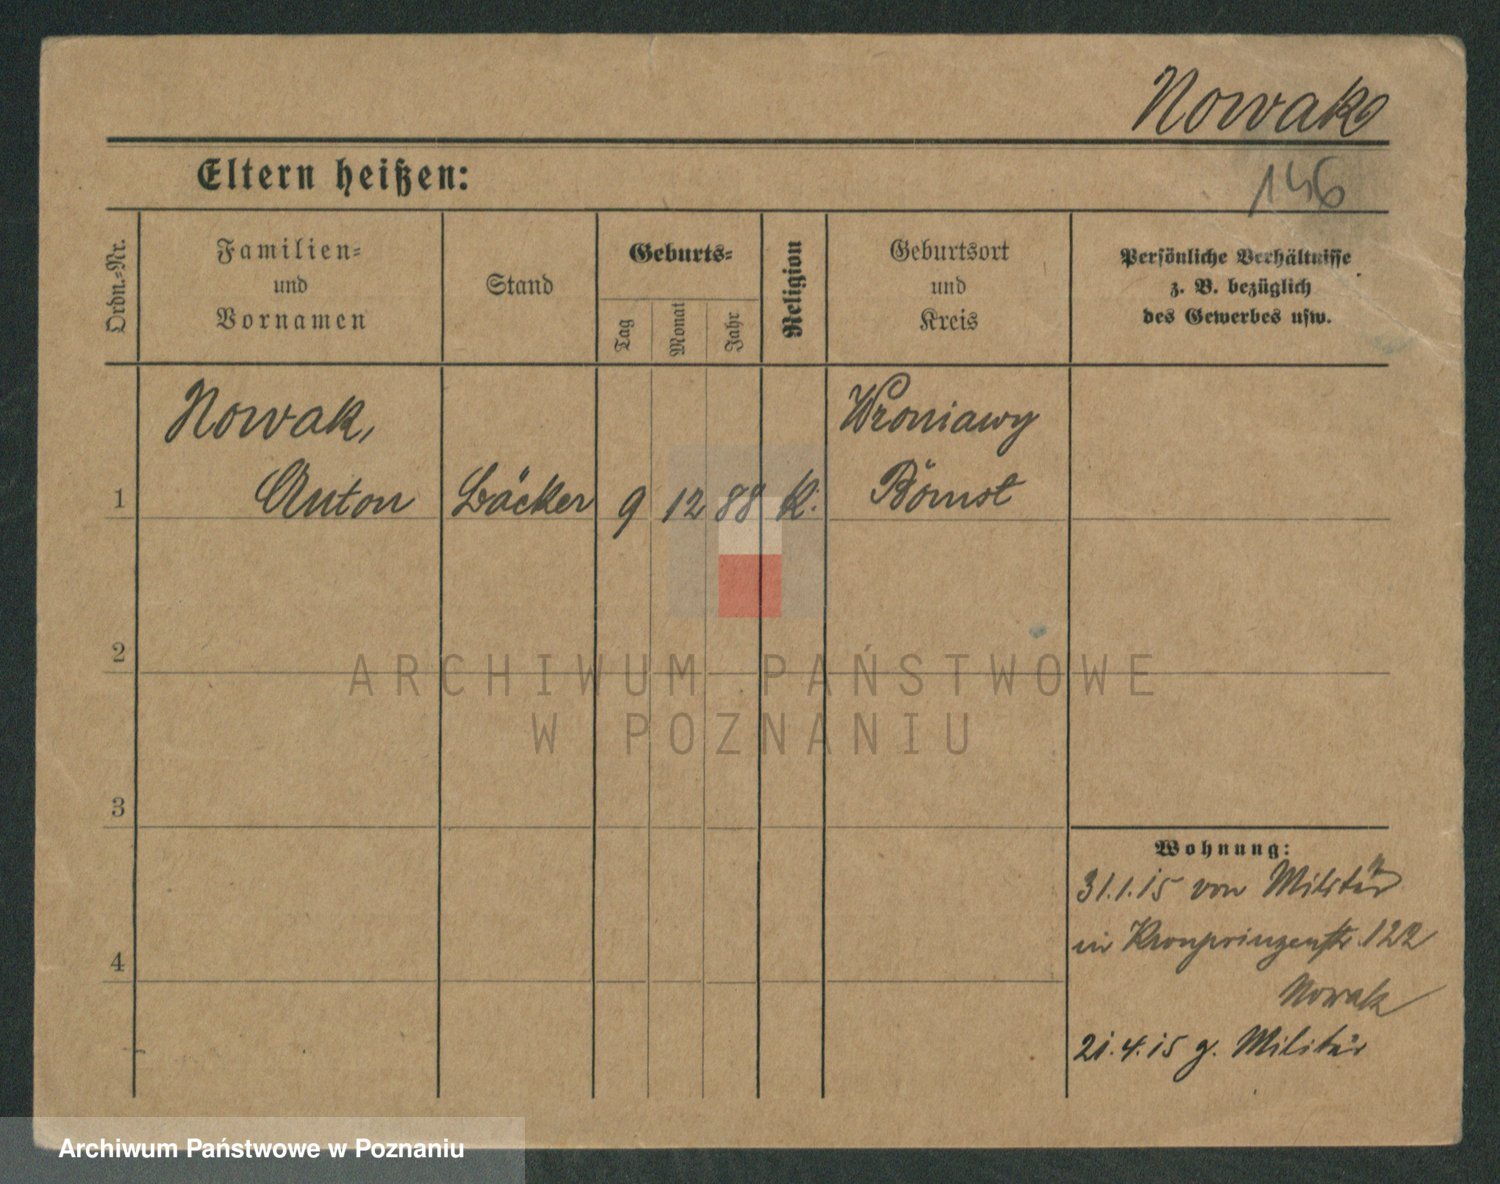 Nowak
146
Eltern heißen:
Ordn.-Nr.
Familien-
und
Vornamen
Stand
Geburts-
Tag
Monat
Jahr
Religion
Geburtsort
und
Kreis
Persönliche Verhältnisse
z. B. bezüglich
des Gewerbes usw.
Nowak,
Wroniawy
1 Anton Bäcker 9 12 88 k. Bomst
2
3
4
Wohnung:
31.1.15 von Militär
in Kronprinzenstr. 122
Nowak
21.4.15 z. Militär
ARCHIWUM PAŃSTWOWE
W POZNANIU
Archiwum Państwowe w Poznaniu